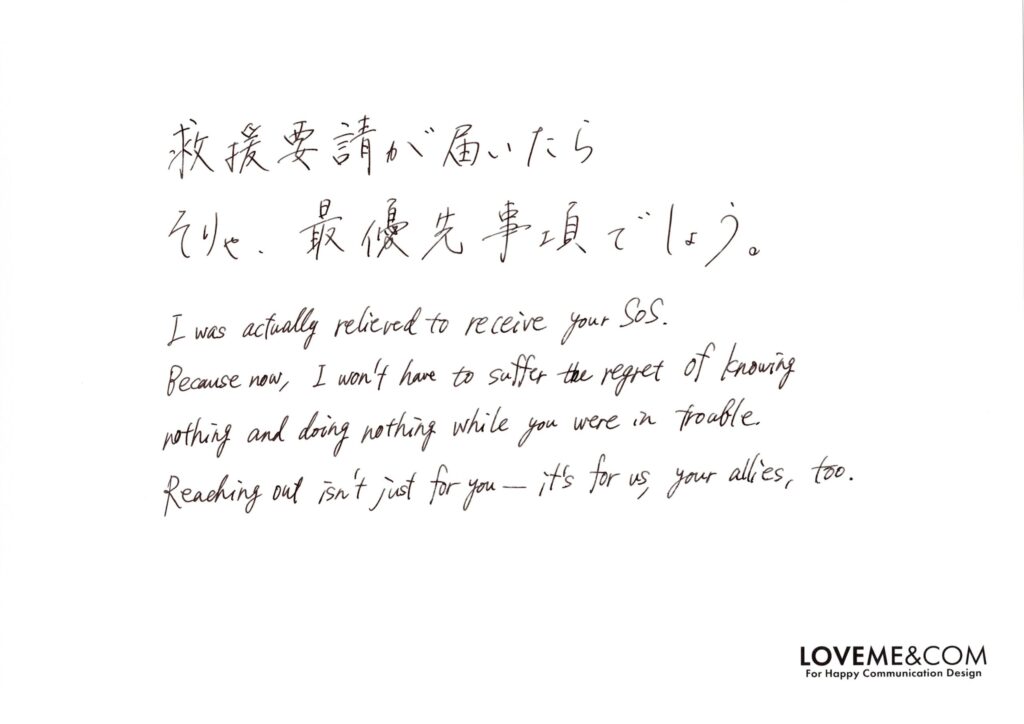 救援要請が届いたら
そりゃ、最優先事項でしょう。
I was actually relieved to receive your SOS.
Because now, I won't have to suffer the regret of knowing
nothing and doing nothing while you were in trouble.
Reaching out isn't just for you — it's for us, your allies, too.
LOVEME&COM
For Happy Communication Design